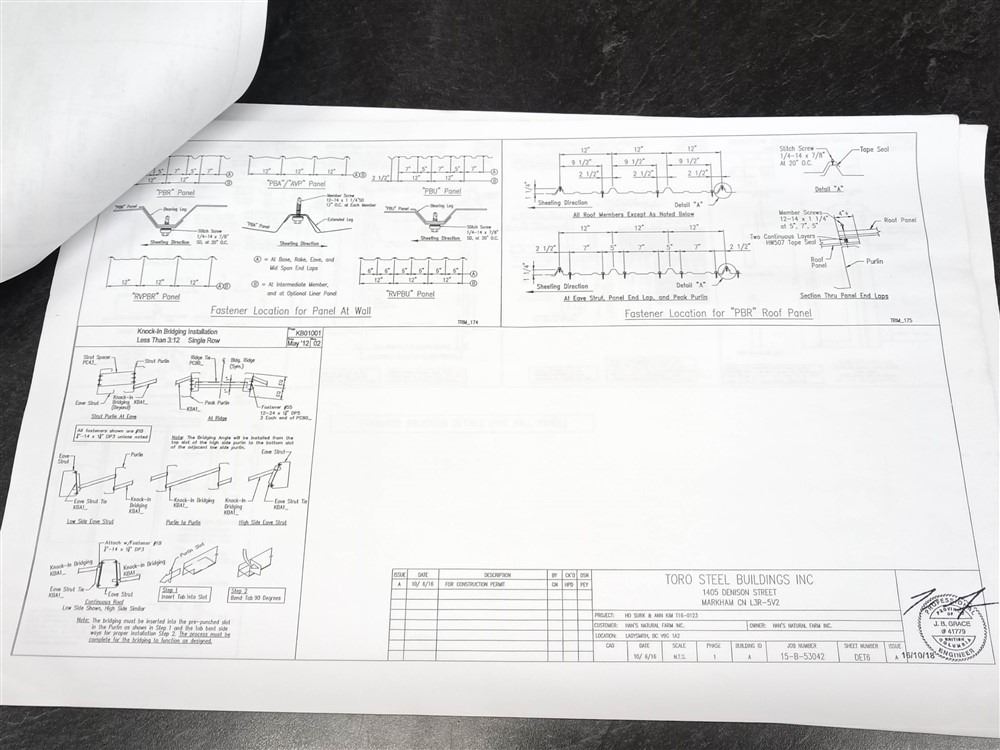 7" 5" 7" 5" 7"
12" 12"
A
B
"PBR" Panel
12" 12"
A B
"PBA"/"AVP" Panel
12" 12"
A
B
"PBU" Panel
"PBR" Panel
Bearing Leg
Stitch Screw
1/4-14 x 7/8"
SD, at 20" O.C.
Sheeting Direction
Member Screw
12-14 x 1 1/4"SD
12" O.C. at Each Member
Extended Leg
Sheeting Direction
"PBU" Panel
Bearing Leg
Stitch Screw
1/4-14 x 7/8"
SD, at 20" O.C.
Sheeting Direction
12" 12" 12"
"RVPBR" Panel
A = At Base, Rake, Eave, and
Mid Span End Laps
B = At Intermediate Member,
and at Optional Liner Panel
6" 6" 6" 6" 6" 6"
12" 12" 12"
A
B
"RVPBU" Panel
Fastener Location for Panel At Wall
TRIM_174
12" 12" 12"
9 1/2" 9 1/2" 9 1/2"
2 1/2" 2 1/2" 2 1/2"
1 1/4"
Sheeting Direction
Detail "A"
All Roof Members Except As Noted Below
12" 12" 12"
2 1/2" 7" 5" 7" 5" 7" 2 1/2"
1 1/4"
Sheeting Direction
Detail "A"
At Eave Strut, Panel End Lap, and Peak Purlin
Stitch Screw
1/4-14 x 7/8"
At 20" O.C.
Tape Seal
Detail "A"
Member Screws
12-14 x 1 1/4"
at 5", 7", 5"
Two Continuous Layers
HW507 Tape Seal
Roof Panel
Roof
Panel
Purlin
Section Thru Panel End Laps
Fastener Location for "PBR" Roof Panel
TRIM_175
Knock-In Bridging Installation
Less Than 3:12 Single Row
KB01001
May '12
02
Strut Spacer
PC43_
Strut Purlin
Eave Strut
Knock-In
Bridging
KBA1_
Strut Purlin At Eave
Ridge Tie
PC80_
Bldg. Ridge
(Sym.)
Peak Purlin
KBA1_
At Ridge
Fastener #55
12-24 x 1¼" DP5
All fasteners shown are #19
unless noted
Note: The Bridging Angle will be installed from the
top slot of the high side purlin to the bottom slot
of the adjacent low side purlin.
Eave
Strut
Purlin
Eave Strut
Eave Strut Tie
KBA1_
Knock-In
Bridging
KBA1_
Knock-In Bridging
KBA1_
Knock-In
Bridging
KBA1_
Eave Strut Tie
KBA1_
Low Side Eave Strut
Purlin to Purlin
High Side Eave Strut
Attach w/Fastener #19
Knock-In Bridging
KBA1_
Knock-In Bridging
KBA1_
Continuous Roof
Low Side Shown, High Side Similar
Purlin Slot
Step 1
Insert Tab Into Slot
Step 2
Bend Tab 90 Degrees
Note: The bridging must be inserted into the pre-punched slot
in the Purlin as shown in Step 1 and the tab bent side
ways for proper installation Step 2. The process must be
complete for the bridging to function as designed.
ISSUE DATE DESCRIPTION BY CK'D DSN
A 10/ 6/16 FOR CONSTRUCTION PERMIT CN HPD PEY
TORO STEEL BUILDINGS INC
1405 DENISON STREET
MARKHAM CN L3R-5V2
PROJECT: HO SUNK & ANN KIM T16-0123
CUSTOMER: HAN'S NATURAL FARM INC. OWNER: HAN'S NATURAL FARM INC.
LOCATION: LADYSMITH, BC V9G 1A2
CAD DATE SCALE PHASE BUILDING ID JOB NUMBER SHEET NUMBER ISSUE
10/ 6/16 N.T.S. 1 A 15-B-53042 DET6 A
PROFESSIONAL
PROVINCE
OF
J. B. GRACE
# 41779
BRITISH
COLUMBIA
ENGINEER
16/10/18